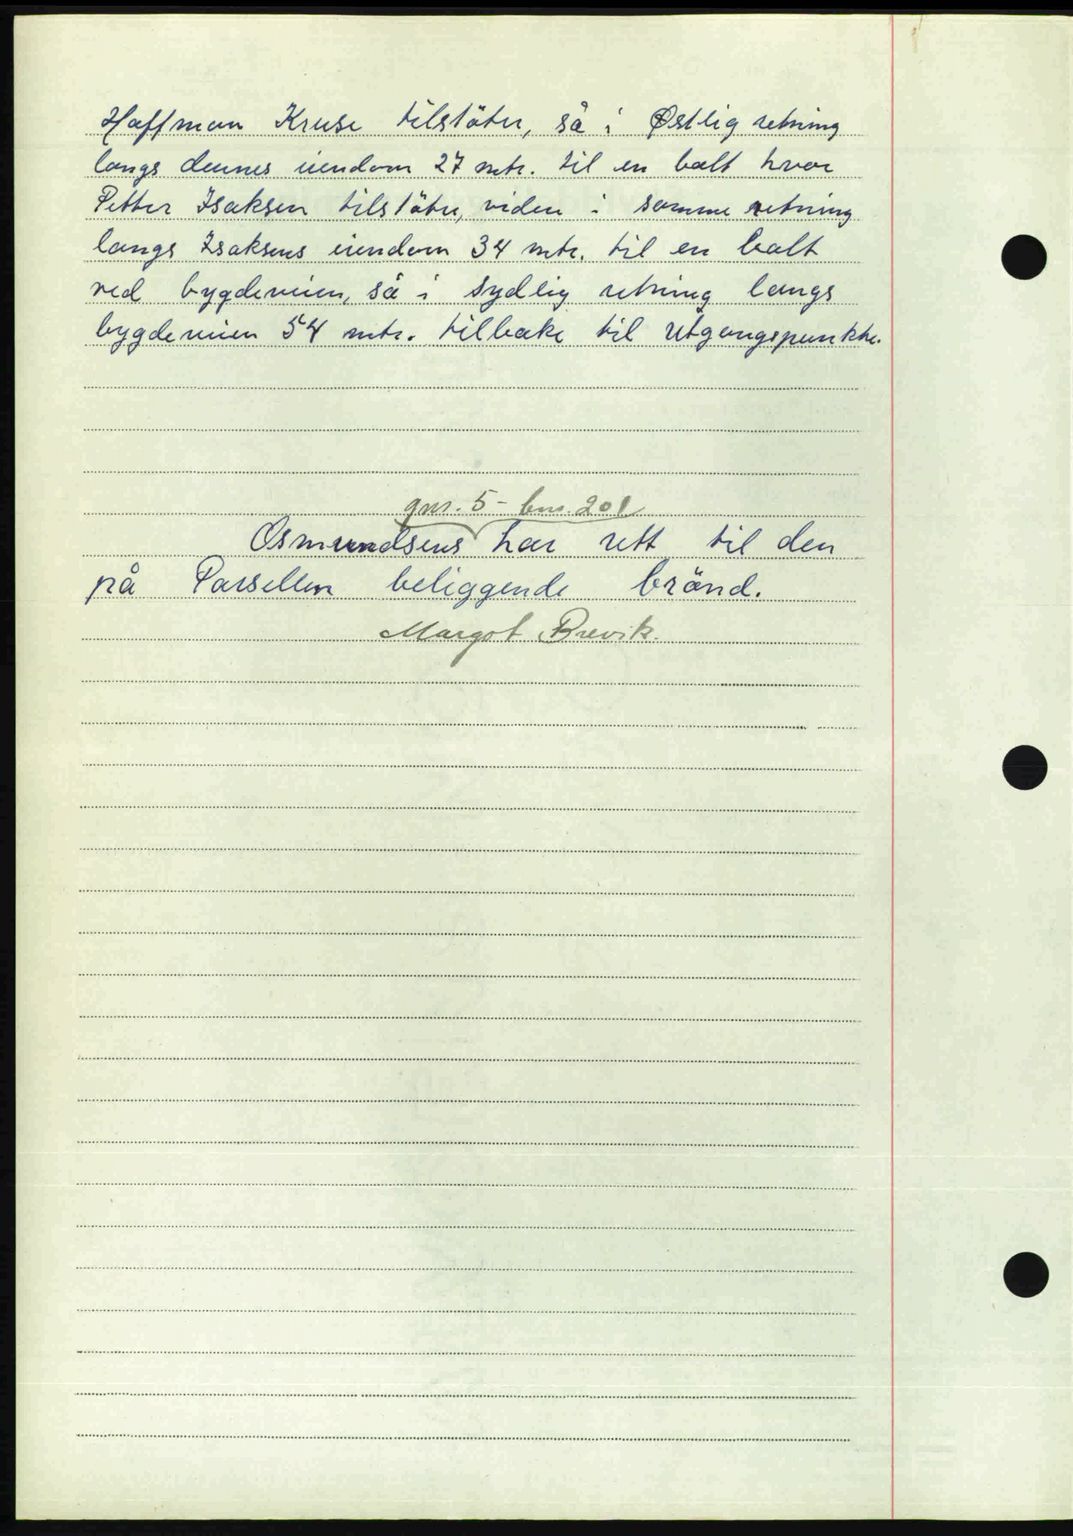 Hoffman Kruse tilstöter, så i Østlig retning
langs dennes eiendom 27 mtr. til en bolt hvor
Petter Isaksen tilstöter, viden i samme retning
langs Isaksens eiendom 34 mtr. til en bolt
ved bygdeveien, så i sydlig retning langs
bygdeveien 54 mtr. tilbake til utgangspunktet.
gnr. 5 - bnr. 201
Osmundsens har rett til den
på Parsellen beliggende brönd.
Margot Brevik.